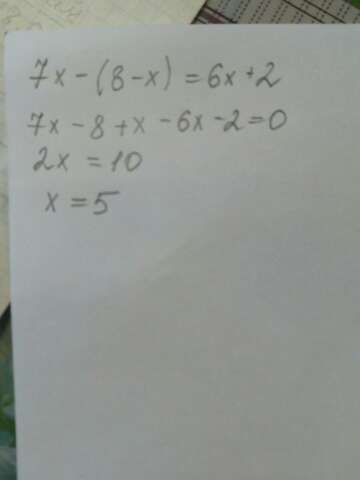 7x-(8-x)=6x+2
7x-8+x-6x-2=0
2x=10
x=5